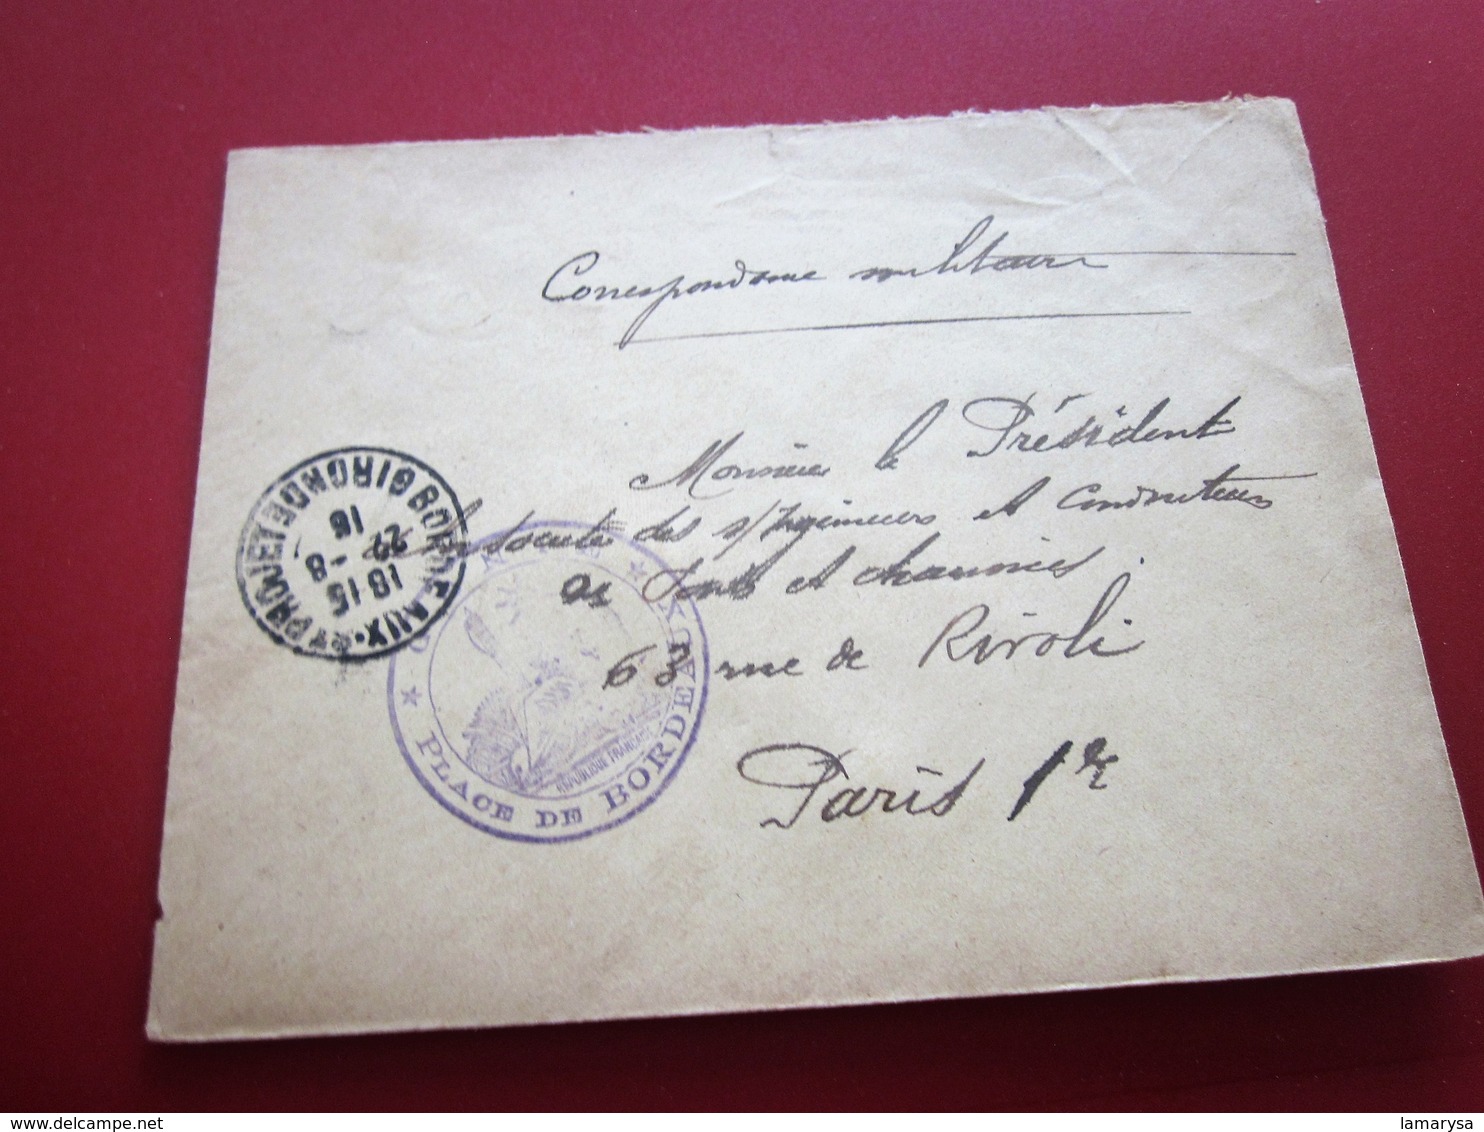 Correspondance militaire
Monsieur le Président
de la Société des s/Ingénieurs et Conducteurs
des Ponts et chaussées
68 rue de Rivoli
Paris 1er
BORDEAUX GIRONDE
18 15
27 - 8
16
PLACE DE BORDEAUX
REPUBLIQUE FRANCAISE
delcampe.net
lamarysa